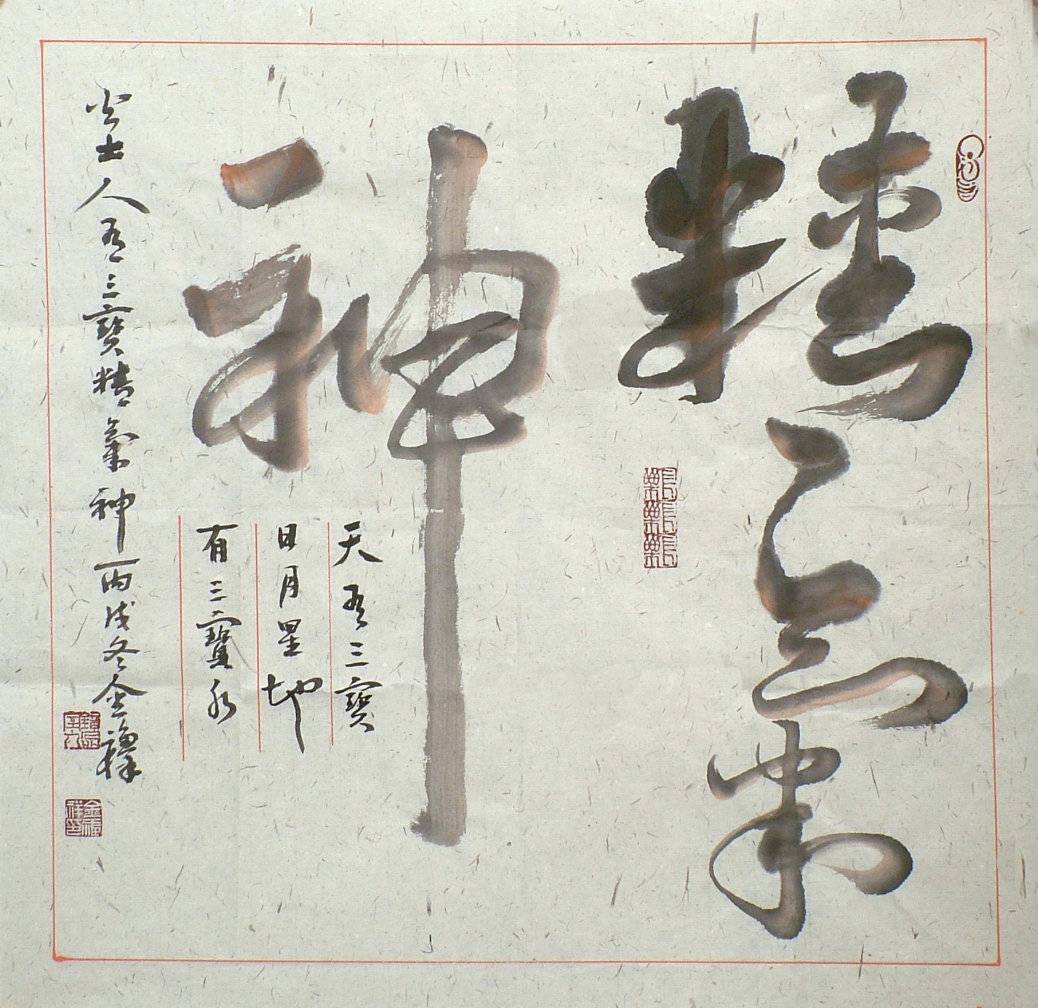 精氣
神
天有三寶
日月星地
有三寶水
火土人有三寶精氣神丙戌冬金